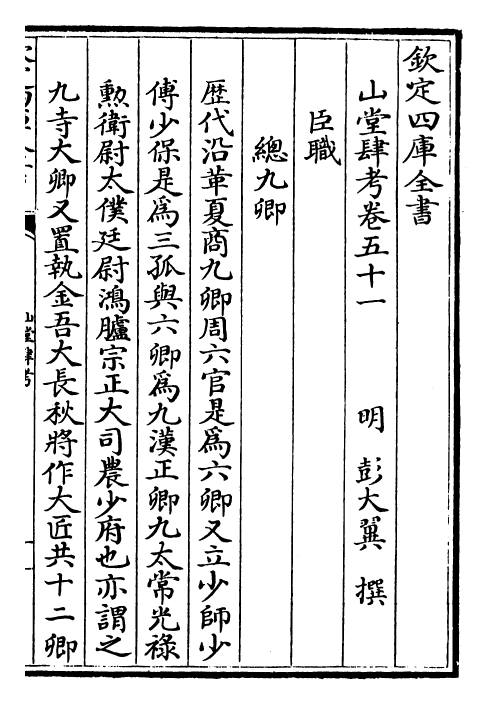 欽定四庫全書
山堂肆考卷五十一 明 彭大翼 撰
臣職
總九卿
歴代沿革夏商九卿周六官是為六卿又立少師少
傅少保是為三孤與六卿為九漢正卿九太常光祿
勲衛尉太僕廷尉鴻臚宗正大司農少府也亦謂之
九寺大卿又置執金吾大長秋將作大匠共十二卿
山堂肆考